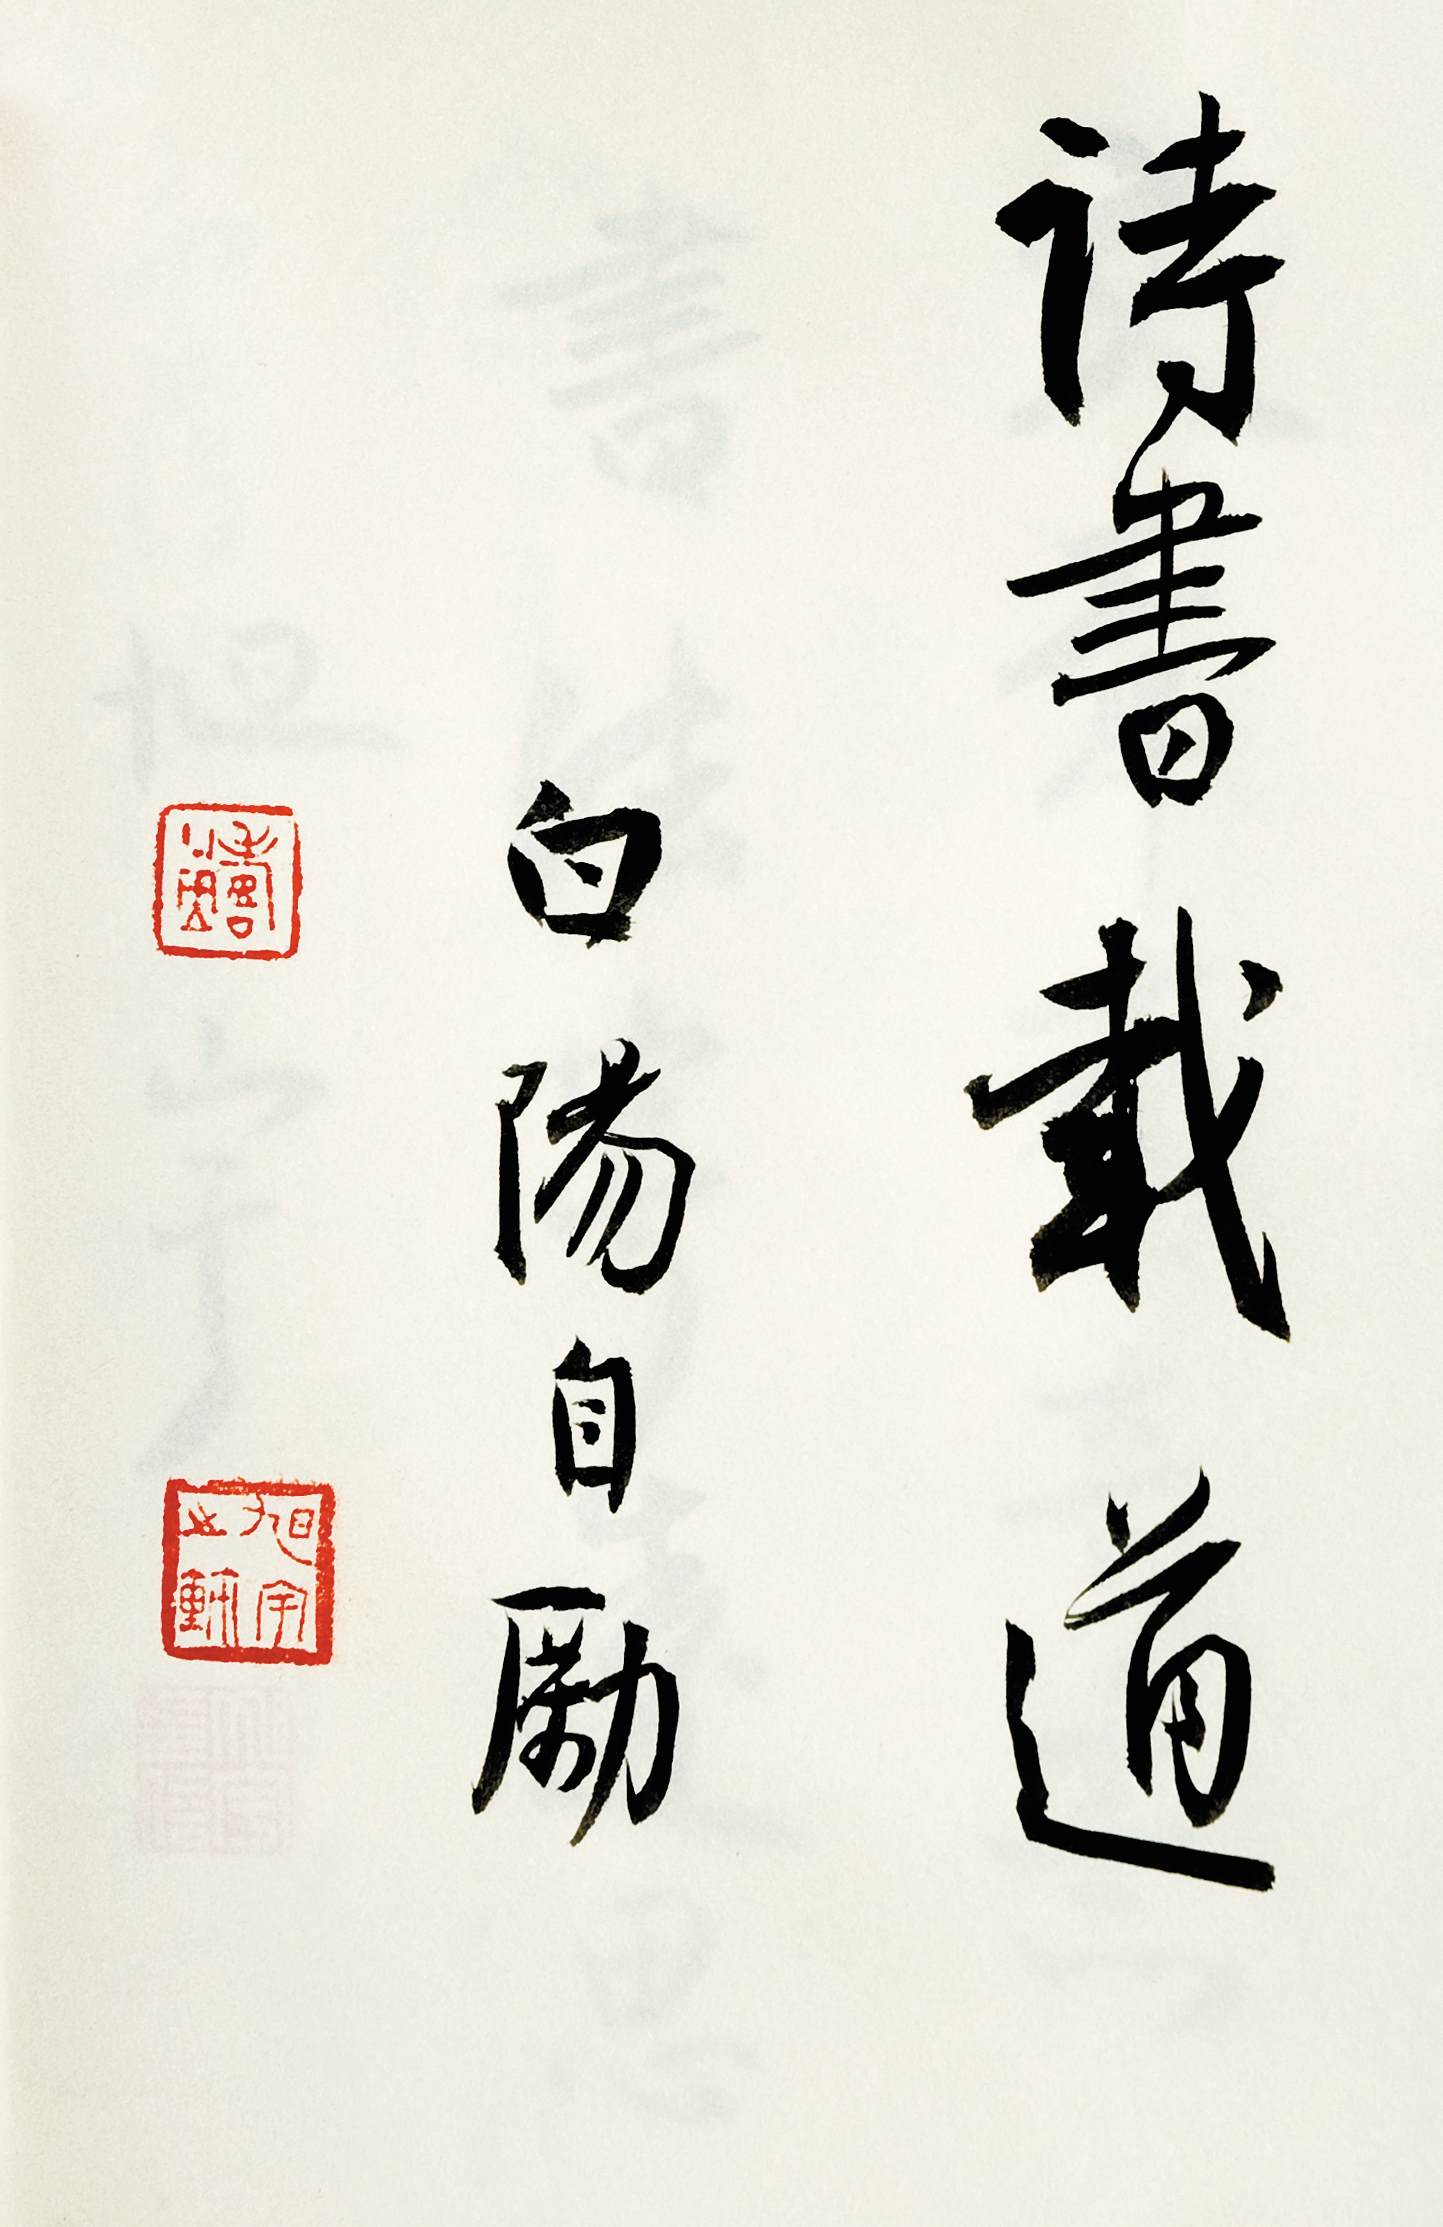 詩書載道
白陽自勵
旭宇之軒